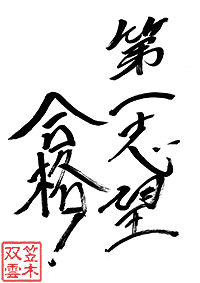 第一志望
合格!
笠木
双雲